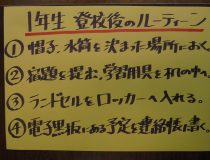 1年生 登校後のルーティーン
① 帽子、水筒を決まった場所におく。
② 宿題を提出、学習用具を机の中へ。
③ ランドセルをロッカーへ入れる。
④ 電子黒板にある予定を連絡帳に書く。